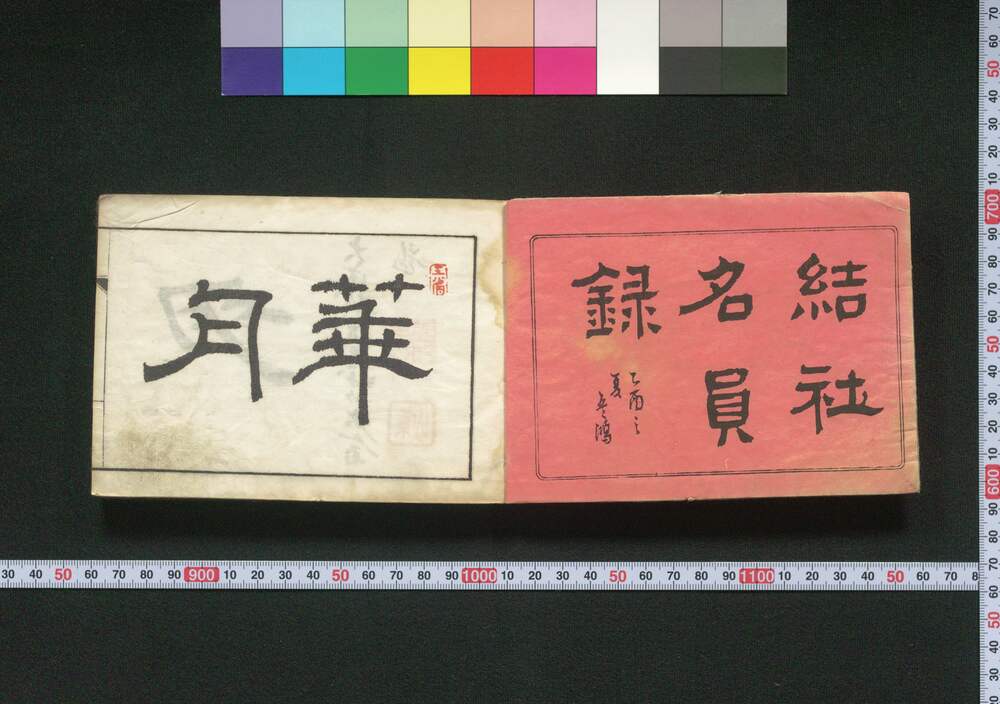 結社
名員
録
乙酉之
夏
華月
30 40 50 60 70 80 90 900 10 20 30 40 50 60 70 80 90 1000 10 20 30 40 50 60 70 80 90 1100 10 20 30 40 50 60 70 8
70 60 50 40 30 20 10 700 90 80 70 60 50 40 30 20 10 600 90 80 70 60 50 40 30 20